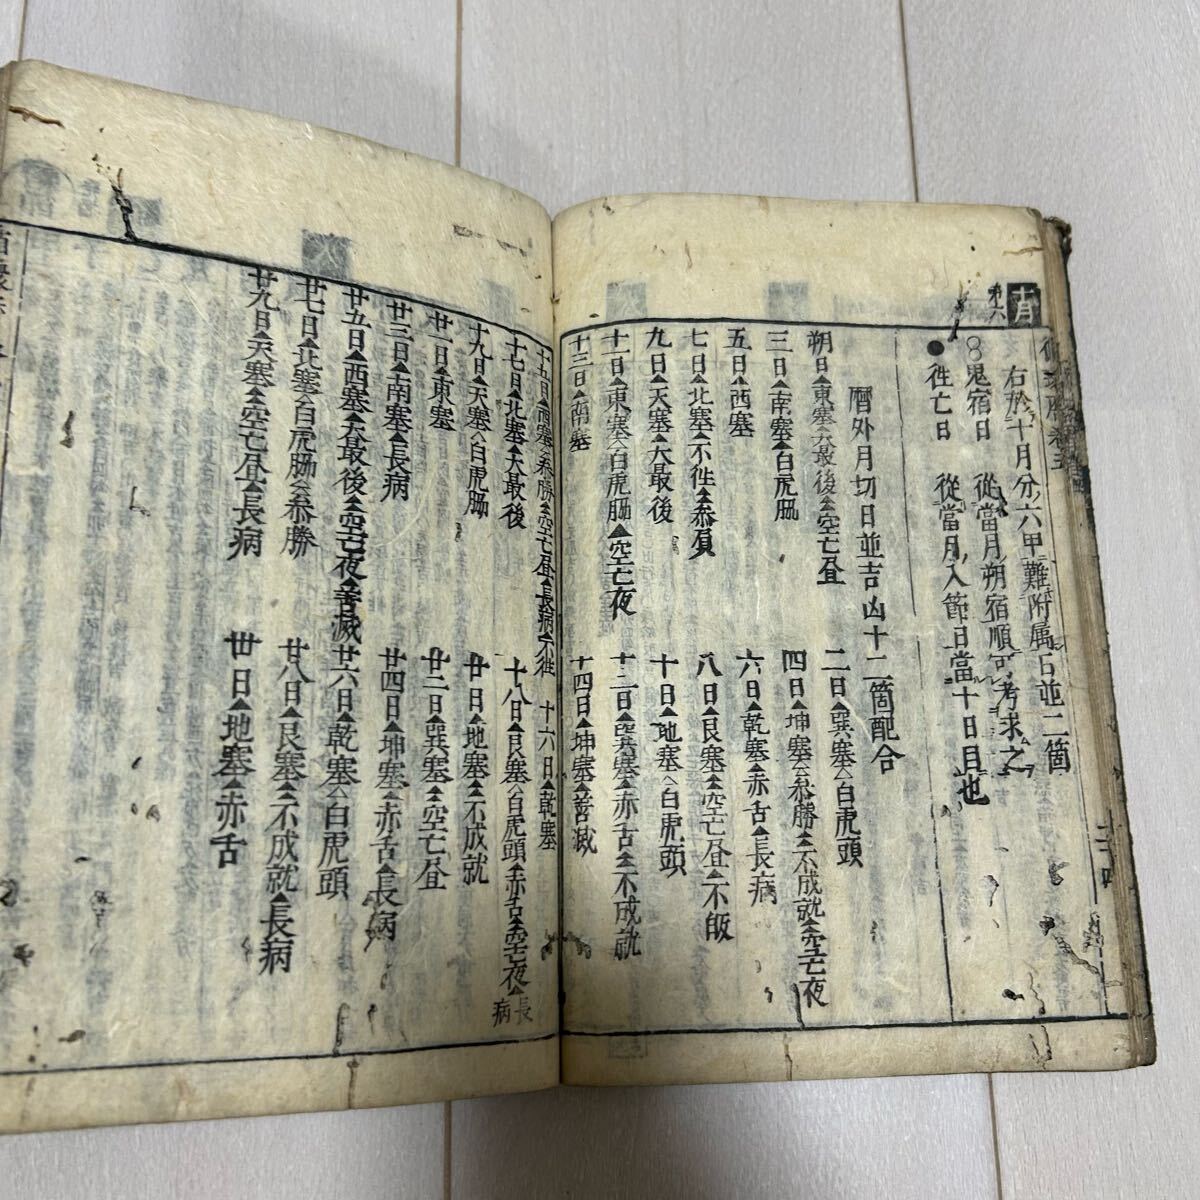 十月
右於十月分六甲難附属占並二箇
鬼宿日 従當月朔宿順可考求之
●徃亡日 從當月入節日當十日目也
暦外月切日並吉凶十二箇配合
朔日▲東塞▲大最後▲空亡昼 二日▲巽塞▲白虎頭
三日▲南塞▲白虎脇 四日▲坤塞▲泰勝▲不成就▲空亡夜
五日▲西塞 六日▲乾塞▲赤舌▲長病
七日▲北塞▲不徃▲泰負 八日▲艮塞▲空亡昼▲不皈
九日▲天塞▲大最後 十日▲地塞▲白虎頭
十一日▲東塞▲白虎脇▲空亡夜 十二日▲巽塞▲赤舌▲不成就
十三日▲南塞 十四日▲坤塞▲善滅
十五日▲西塞▲泰勝▲空亡昼▲長病▲不徃 十六日▲乾塞
十七日▲北塞▲大最後 十八日▲艮塞▲白虎頭▲赤舌▲空亡夜▲長病
十九日▲天塞▲白虎脇 廿日▲地塞▲不成就
廿一日▲東塞 廿二日▲巽塞▲空亡昼
廿三日▲南塞▲長病 廿四日▲坤塞▲赤舌▲長病
廿五日▲西塞▲大最後▲空亡夜▲善滅 廿六日▲乾塞▲白虎頭
廿七日▲北塞▲白虎脇▲泰勝 廿八日▲艮塞▲不成就▲長病
廿九日▲天塞▲空亡昼▲長病 卅日▲地塞▲赤舌